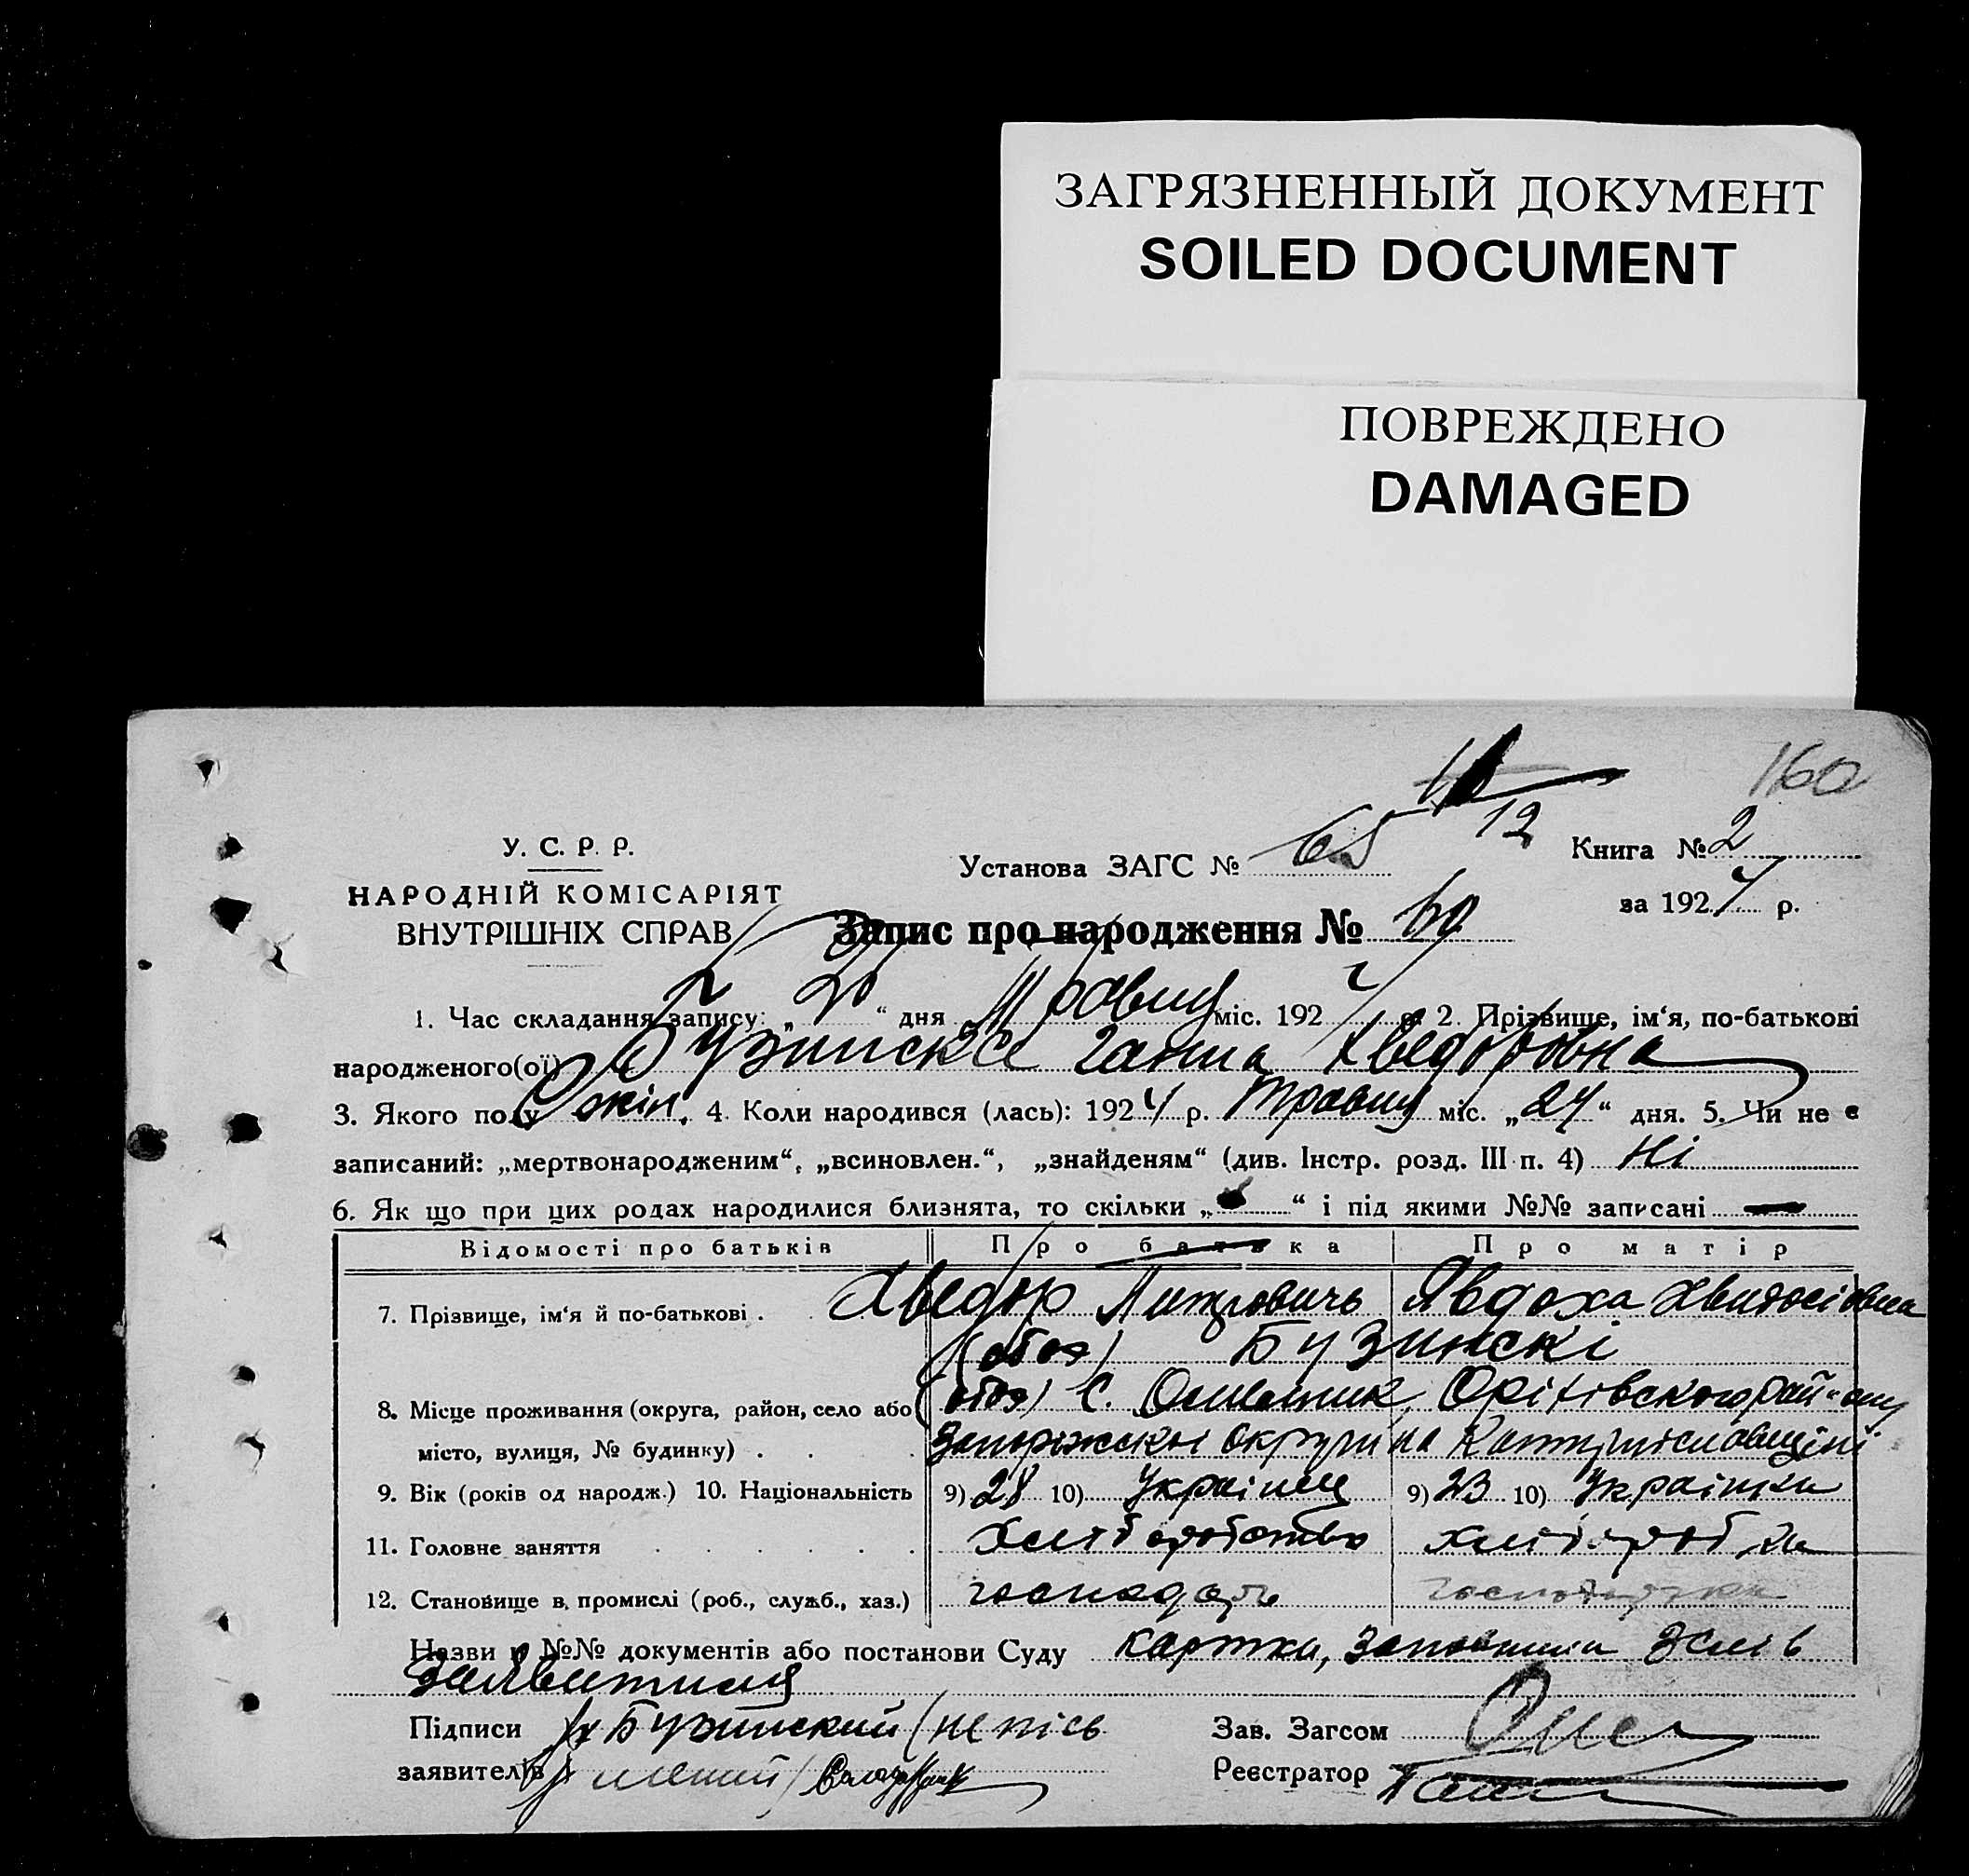 ЗАГРЯЗНЕННЫЙ ДОКУМЕНТ
SOILED DOCUMENT
ПОВРЕЖДЕНО
DAMAGED
160
12
У. С. Р. Р.
НАРОДНІЙ КОМІСАРІЯТ
ВНУТРІШНІХ СПРАВ
Установа ЗАГС № 65
Книга № 2
за 1924 р.
Запис про народження № 60
1. Час складання запису: „ “ дня Травня міс. 1924 р. 2. Прізвище, ім‘я, по-батькові
народженого(ої) Бузинска Ганна Хведоровна
3. Якого полу жін. 4. Коли народився (лась): 1924 р. Травня міс. „24“ дня. 5. Чи не є
записаний: „мертвонародженим“, „всиновлен.“, „знайденям“ (див. Інстр. розд. III п. 4) Ні
6. Як що при цих родах народилися близнята, то скільки „ “ і під якими №№ записані —
Відомості про батьків Про батька Про матір
7. Прізвище, ім‘я й по-батькові . Хведор Митровичь Явдоха
(обоя) Бузинскі
8. Місце проживання (округа, район, село або (обоя) С. Оріхівского району
місто, вулиця, № будинку) . . Запоріжскої округи на Катеринославщині
9. Вік (років од народж.) 10. Національність 9) 28 10) Українец 9) 23 10) Українка
11. Головне заняття . . . . . . Хліборобство
12. Становище в промислі (роб., служб., хаз.) господарь господарка
Назви и №№ документів або постанови Суду картка, заповнена зі слів
заявителя
Підписи Бузинский (непісь
заявителів: мений)
Зав. Загсом
Реєстратор